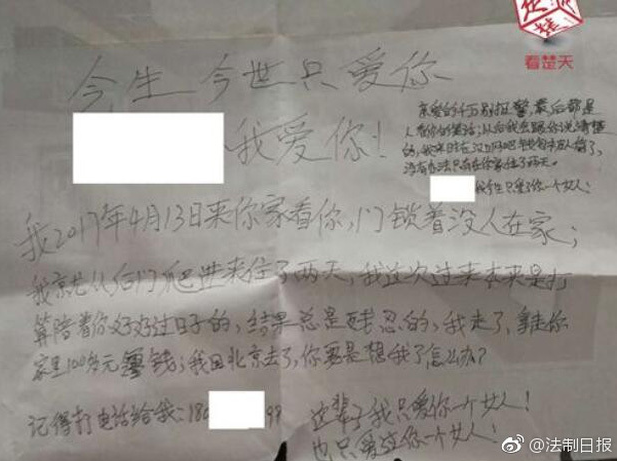 看楚天
今生今世只爱你
我爱你!
亲爱的千万别报警,最后都是
人看你的笑话;以后我会跟你说清楚
的,我来时在汉口吧钱包来人偷了,
没有办法只有在你家住了两天。
我今生只爱了你一个女人!
我2017年4月13日来你家看你,门锁着没人在家;
我就从后门爬进来住了两天,我这次过来本来是打
算陪着你好好过日子的,结果总是残忍的,我走了,拿走你
家里100多元零钱;我回北京去了,你要是想我了怎么办?
记得打电话给我:18 99
这辈子我只爱你一个女人!
也只爱过你一个女人!
@法制日报